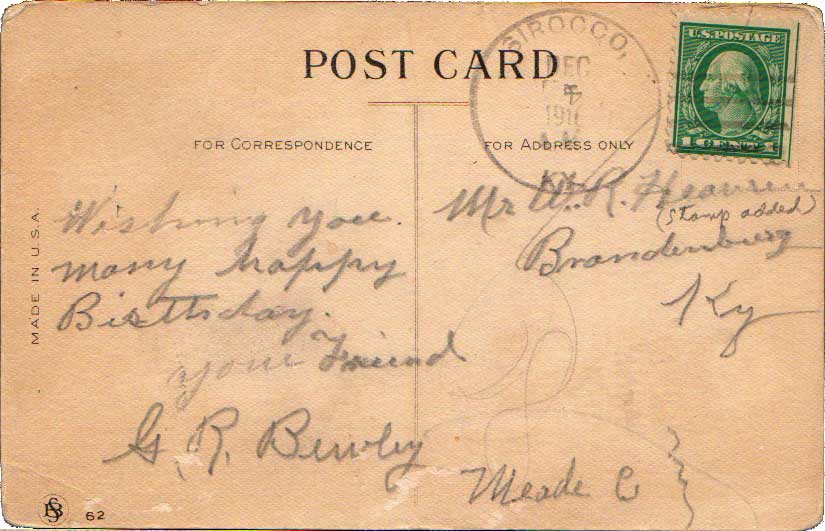 POST CARD
SIROCCO,
DEC
7
191
A.M.
KY.
U.S. POSTAGE
1 CENT 1
FOR CORRESPONDENCE
FOR ADDRESS ONLY
MADE IN U.S.A.
Wishing you
many happy
Birthday.
your Friend
G. R. Bewley
Mr W. R.
(Stamp added)
Brandenburg
Ky
Meade Co
62